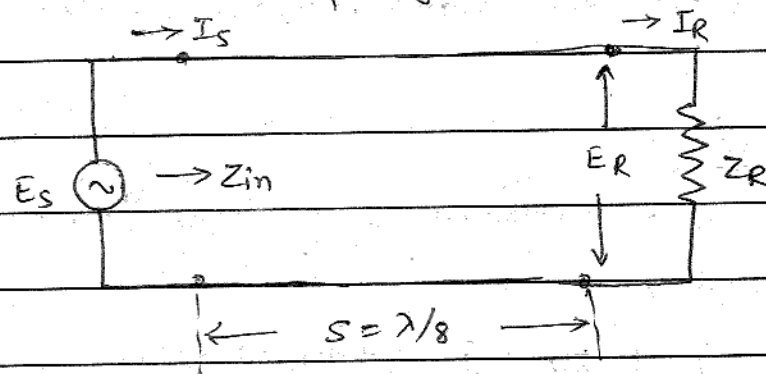 → I_S
→ I_R
E_S
→ Z_in
E_R
Z_R
S = λ/8